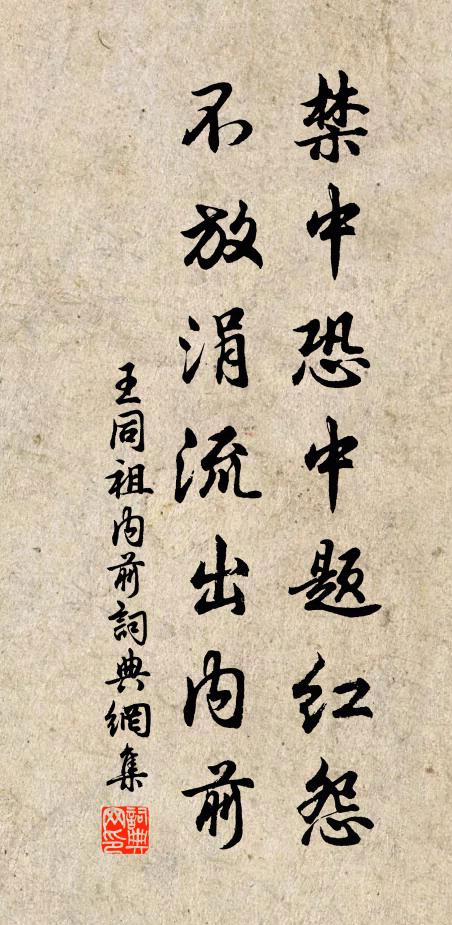 禁中恐中題红怨
不放涓流出内前
王同祖内前詞典網集
詞典网印